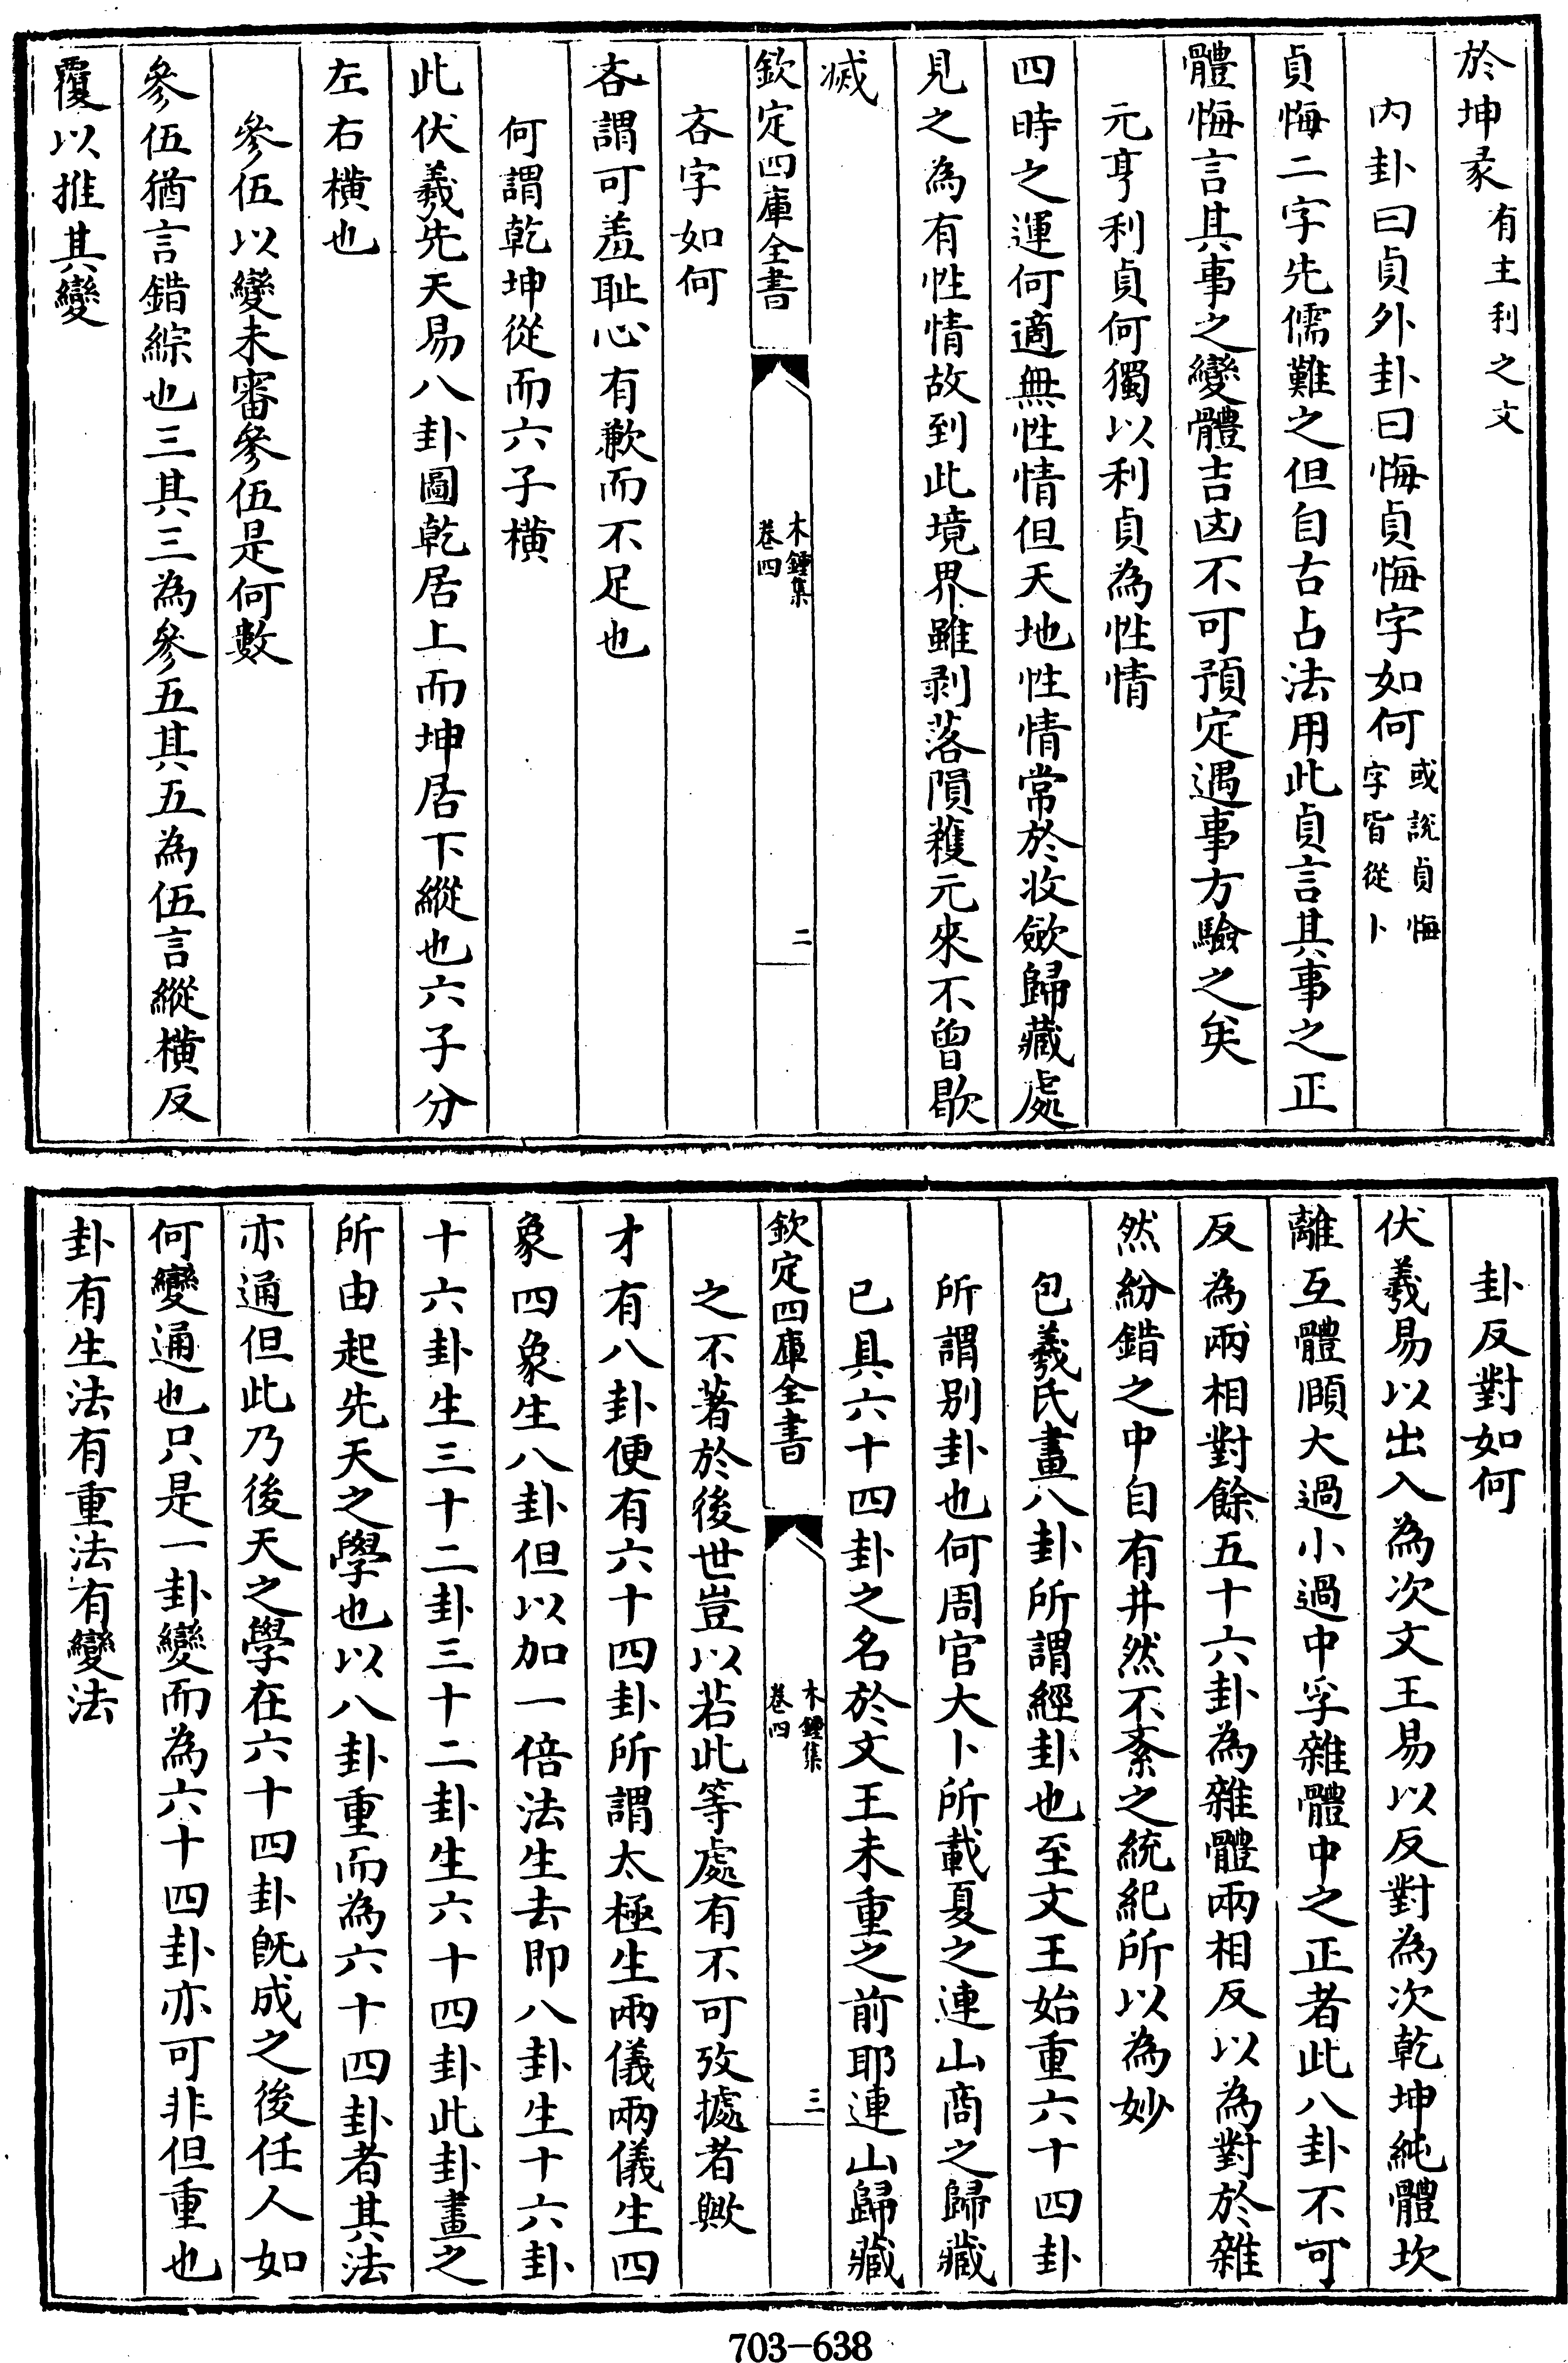 於坤彖有主利之文
內卦曰貞外卦曰悔貞悔字如何或說貞悔字皆從卜
貞悔二字先儒難之但自古占法用此貞言其事之正
體悔言其事之變體吉凶不可預定遇事方驗之矣
元亨利貞何獨以利貞為性情
四時之運何適無性情但天地性情常於收斂歸藏處
見之為有性情故到此境界雖剥落隕穫元來不曾歇
滅
欽定四庫全書
木鍾集
卷四
二
吝字如何
吝謂可羞耻心有歉而不足也
何謂乾坤從而六子橫
此伏羲先天易八卦圖乾居上而坤居下縱也六子分
左右橫也
參伍以變未審參伍是何數
參伍猶言錯綜也三其三為參五其五為伍言縱橫反
覆以推其變
卦反對如何
伏羲易以出入為次文王易以反對為次乾坤純體坎
離互體頤大過小過中孚雜體中之正者此八卦不可
反為兩相對餘五十六卦為雜體兩相反以為對於雜
然紛錯之中自有井然不紊之統紀所以為妙
包羲氏畫八卦所謂經卦也至文王始重六十四卦
所謂别卦也何周官大卜所載夏之連山商之歸藏
已具六十四卦之名於文王未重之前耶連山歸藏
欽定四庫全書
木鍾集
卷四
三
之不著於後世豈以若此等處有不可攷據者歟
才有八卦便有六十四卦所謂太極生兩儀兩儀生四
象四象生八卦但以加一倍法生去即八卦生十六卦
十六卦生三十二卦三十二卦生六十四卦此卦畫之
所由起先天之學也以八卦重而為六十四卦者其法
亦通但此乃後天之學在六十四卦既成之後任人如
何變通也只是一卦變而為六十四卦亦可非但重也
卦有生法有重法有變法
703-638